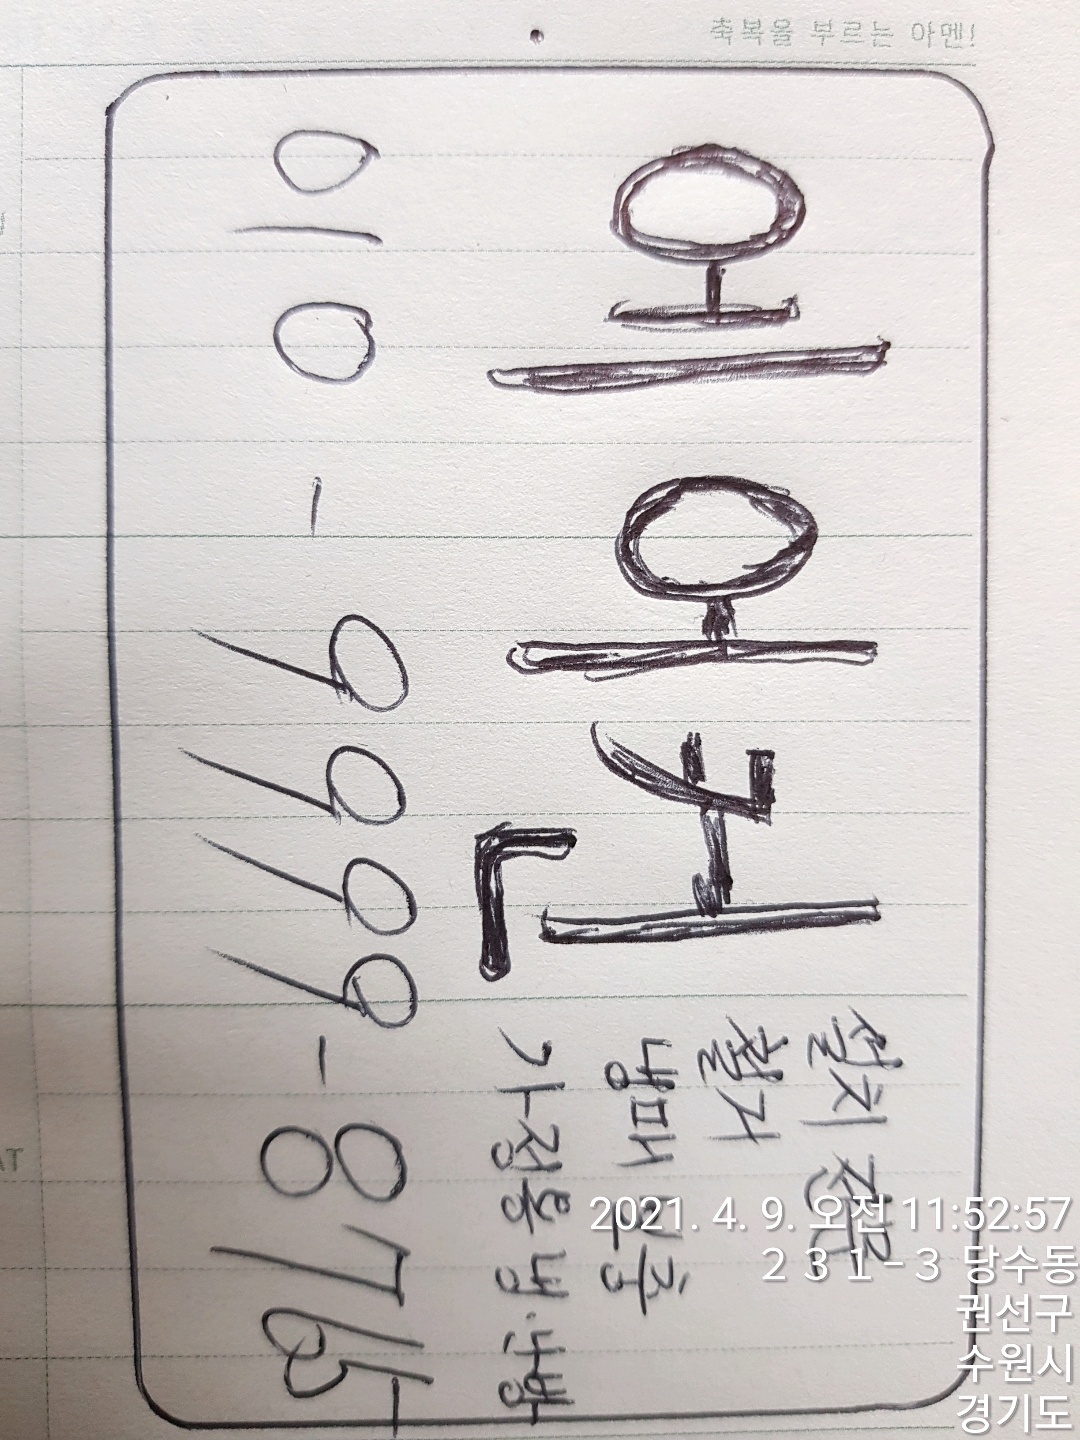 축복을 부르는 아멘!
에어컨
설치 전문
철거
냉매 보충
가정용 냉·난방
010-9999-8765
2021. 4. 9. 오전 11:52:57
231-3 당수동
권선구
수원시
경기도